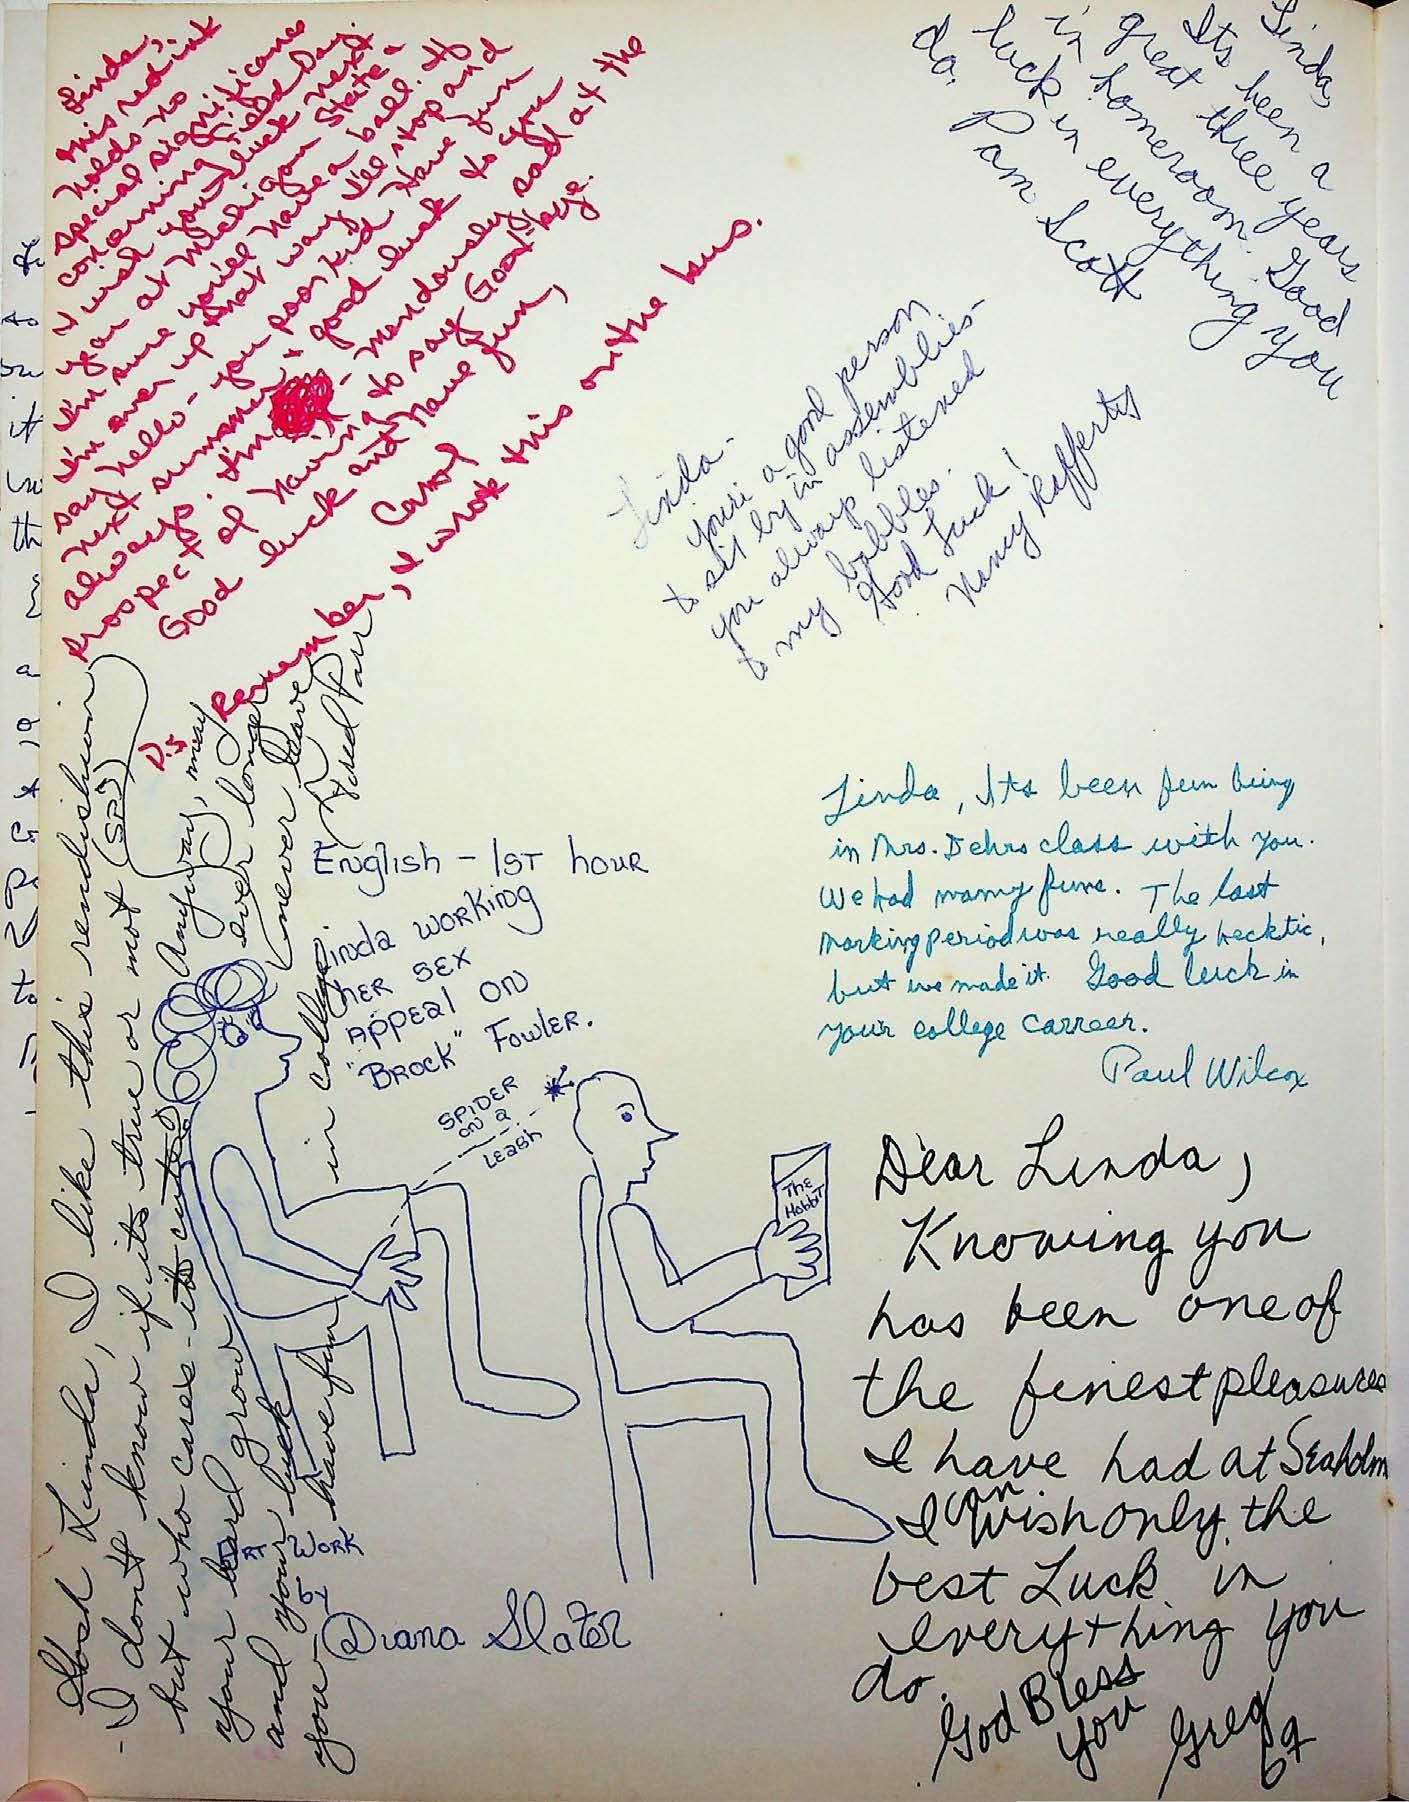 Linda,
this red ink
holds no
special significance
concerning Field Day.
I wish you luck next
year at Michigan State -
I'm sure you'll have a ball. If
I'm ever up that way I'll stop and
say hello - you poor kid. Have fun
next summer + good luck to you
always. I'm - mendously sad at the
prospect of having to say Good-bye.
Good luck and have fun,
Carol
P.S. Remember, I wrote this on the bus.
Linda,
Its been a
great three years
in homeroom. Good
luck in everything you
do.
Pam Scott
Linda -
you're a good person
to sit by in assemblies -
you always listened
to my babbles.
Good Luck!
Nancy Rafferty
Linda, Its been fun being
in Mrs. Dehrs class with you.
We had many funs. The last
marking period was really hecktic,
but we made it. Good luck in
your college carreer.
Paul Wilcox
Gosh Linda, I like this rendishion
- I don't know if its true or not (SP?)
but who cares - its cute. Anyway, may
your beard grow ever longer
and your luck never leave
you have fun in college
Fred Parr
English - 1ST hour
Linda WORKing
HER SEX
APPEAL ON
"BROCK" FOWLER.
SPIDER
ON a
LEASH
The
Hobbit
ART WORK
by
Diana Slater
Dear Linda,
Knowing you
has been one of
the finest pleasures
I have had at Seaholm
I can wish only the
best Luck in
everything you
do.
God Bless
You
Greg
67